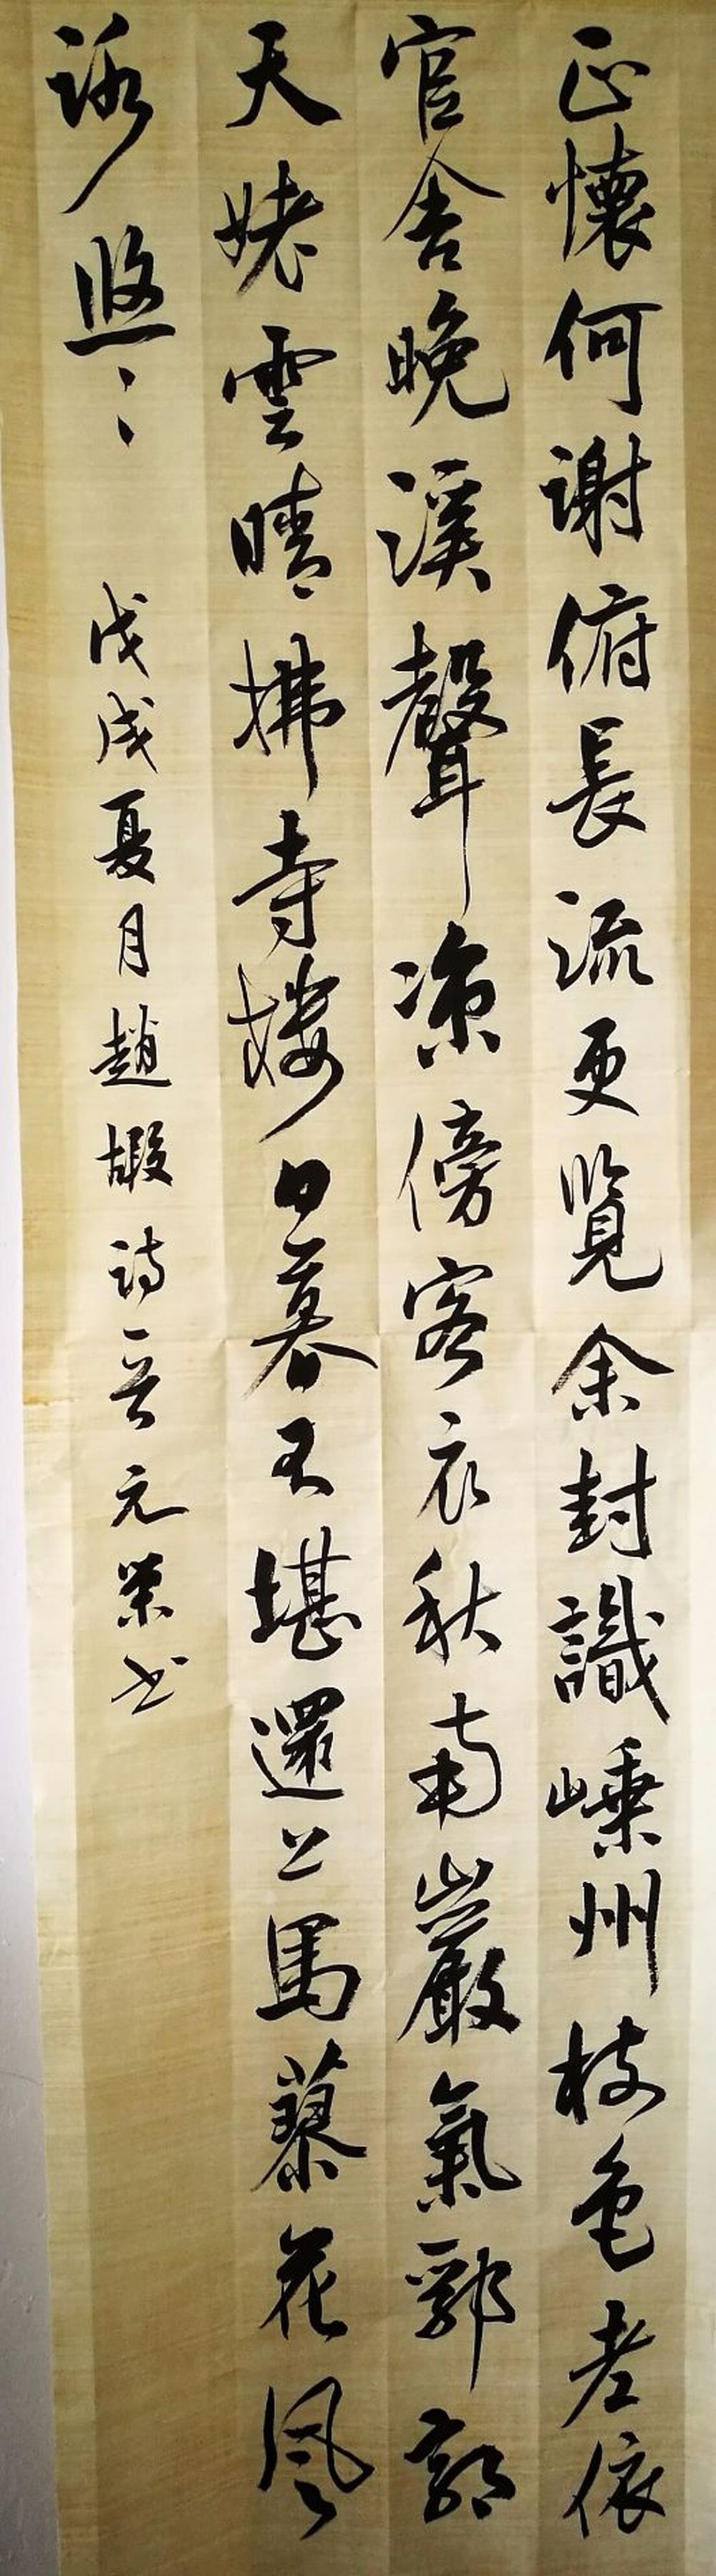 正懷何謝俯長流更覽余封識嵊州樹色老依
官舍晚溪聲涼傍客衣秋南巖氣爽橫郛郭
天姥雲晴拂寺樓日暮不堪還上馬蓼花風
路悠〻 戊戌夏月趙嘏詩 晉元榮书